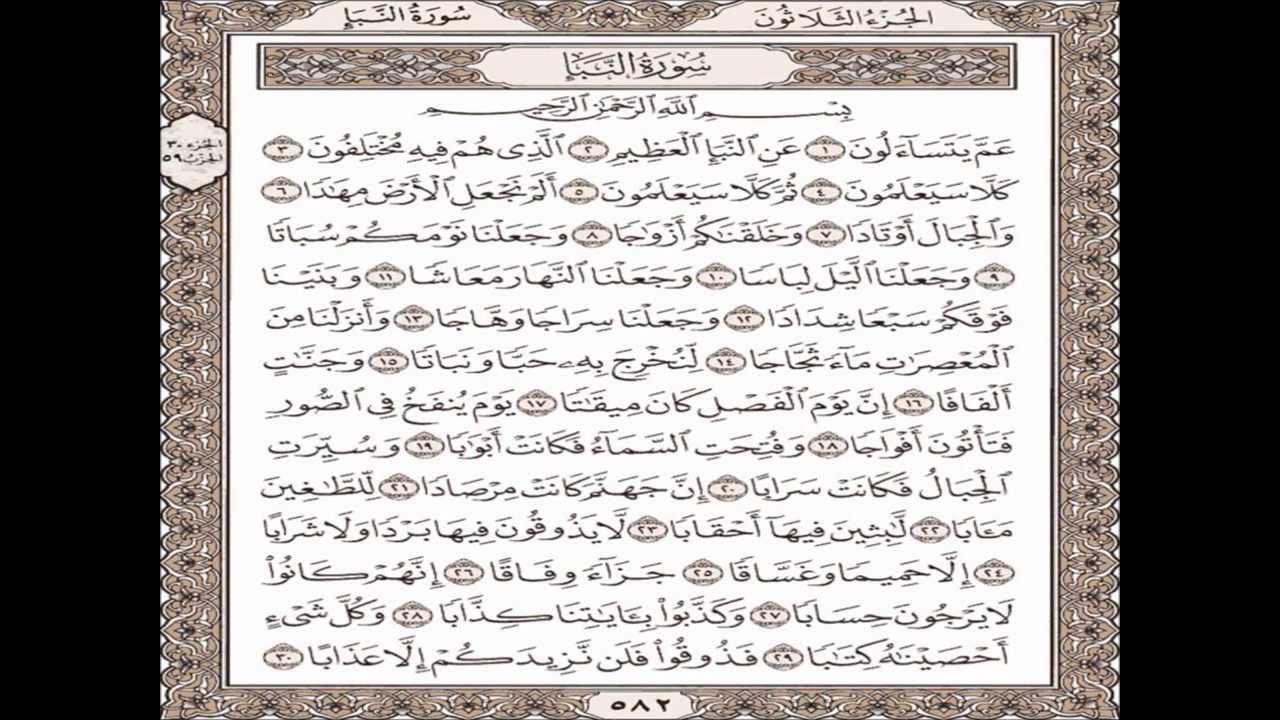 الجُزْءُ الثَّلَاثُونَ
سُورَةُ النَّبَإِ
الجزء ٣٠
الحزب ٥٩
سُورَةُ النَّبَإِ
بِسْمِ اللَّهِ الرَّحْمَٰنِ الرَّحِيمِ
عَمَّ يَتَسَاءَلُونَ ١ عَنِ النَّبَإِ الْعَظِيمِ ٢ الَّذِي هُمْ فِيهِ مُخْتَلِفُونَ ٣
كَلَّا سَيَعْلَمُونَ ٤ ثُمَّ كَلَّا سَيَعْلَمُونَ ٥ أَلَمْ نَجْعَلِ الْأَرْضَ مِهَٰدًا ٦
وَالْجِبَالَ أَوْتَادًا ٧ وَخَلَقْنَٰكُمْ أَزْوَٰجًا ٨ وَجَعَلْنَا نَوْمَكُمْ سُبَاتًا
٩ وَجَعَلْنَا الَّيْلَ لِبَاسًا ١٠ وَجَعَلْنَا النَّهَارَ مَعَاشًا ١١ وَبَنَيْنَا
فَوْقَكُمْ سَبْعًا شِدَادًا ١٢ وَجَعَلْنَا سِرَاجًا وَهَّاجًا ١٣ وَأَنزَلْنَا مِنَ
الْمُعْصِرَٰتِ مَاءً ثَجَّاجًا ١٤ لِّنُخْرِجَ بِهِۦ حَبًّا وَنَبَاتًا ١٥ وَجَنَّٰتٍ
أَلْفَافًا ١٦ إِنَّ يَوْمَ الْفَصْلِ كَانَ مِيقَٰتًا ١٧ يَوْمَ يُنفَخُ فِي الصُّورِ
فَتَأْتُونَ أَفْوَاجًا ١٨ وَفُتِحَتِ السَّمَاءُ فَكَانَتْ أَبْوَٰبًا ١٩ وَسُيِّرَتِ
الْجِبَالُ فَكَانَتْ سَرَابًا ٢٠ إِنَّ جَهَنَّمَ كَانَتْ مِرْصَادًا ٢١ لِّلطَّٰغِينَ
مَـَٔابًا ٢٢ لَّٰبِثِينَ فِيهَا أَحْقَابًا ٢٣ لَّا يَذُوقُونَ فِيهَا بَرْدًا وَلَا شَرَابًا
٢٤ إِلَّا حَمِيمًا وَغَسَّاقًا ٢٥ جَزَاءً وِفَاقًا ٢٦ إِنَّهُمْ كَانُوا
لَا يَرْجُونَ حِسَابًا ٢٧ وَكَذَّبُوا بِـَٔايَٰتِنَا كِذَّابًا ٢٨ وَكُلَّ شَيْءٍ
أَحْصَيْنَٰهُ كِتَٰبًا ٢٩ فَذُوقُوا فَلَن نَّزِيدَكُمْ إِلَّا عَذَابًا ٣٠
٥٨٢